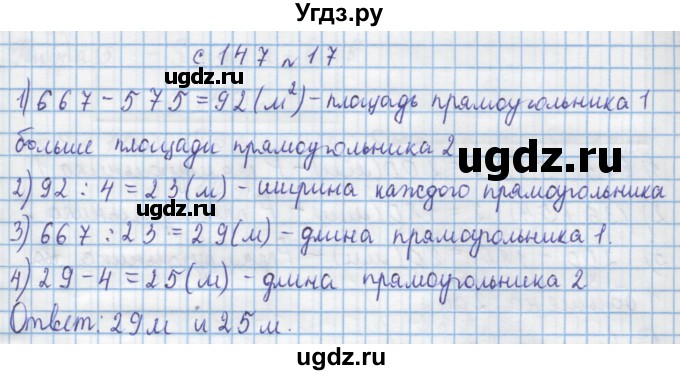 Угдз.ру
с 147 № 17
1) 667 - 575 = 92 (м²) - площадь прямоугольника 1
больше площади прямоугольника 2
2) 92 : 4 = 23 (м) - ширина каждого прямоугольника
3) 667 : 23 = 29 (м) - длина прямоугольника 1.
4) 29 - 4 = 25 (м) - длина прямоугольника 2
Ответ: 29 м и 25 м.
ugdz.ru
ugdz.ru
ugdz.ru
ugdz.ru
ugdz.ru
ugdz.ru
Угдз.ру